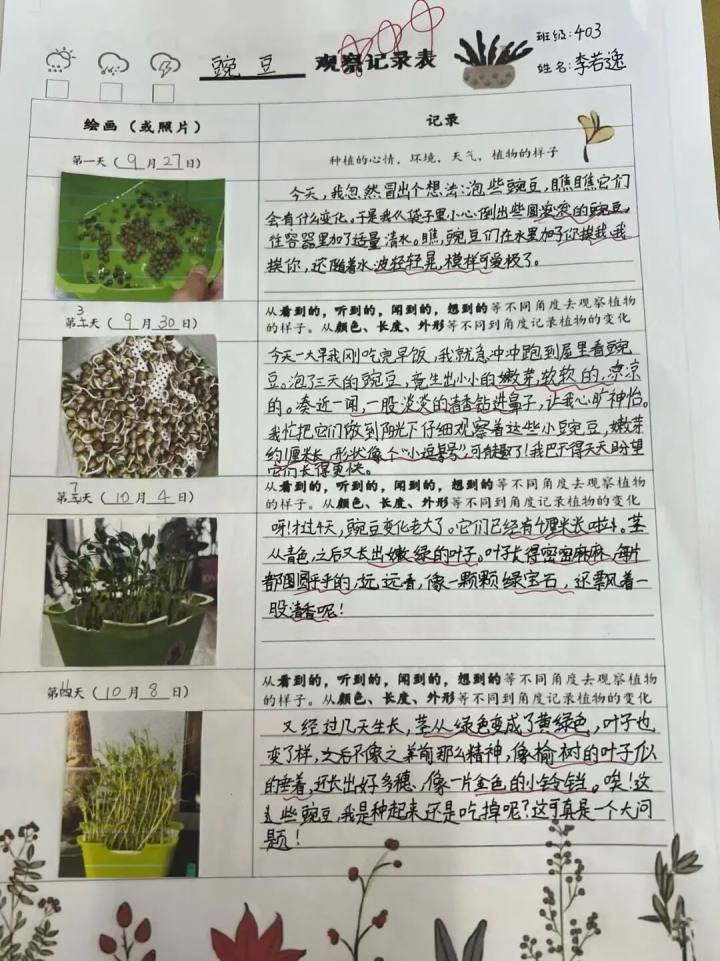 豌豆 观察记录表
班级:403
姓名:李若逸
绘画（或照片）
记录
第一天（9月27日）
种植的心情，环境，天气，植物的样子
今天,我忽然冒出个想法:泡些豌豆,瞧瞧它们
会有什么变化。于是我从袋子里小心倒出些圆滚滚的豌豆,
往容器里加了适量清水。瞧,豌豆们在水里加子你挨我,我
挨你,还随着水波轻轻晃,模样可爱极了。
第3天（9月30日）
从看到的，听到的，闻到的，想到的等不同角度去观察植物
的样子。从颜色、长度、外形等不同到角度记录植物的变化
今天一大早我刚吃完早饭,我就急冲冲跑到屋里看豌
豆。泡了三天的豌豆,竟生出小小的嫩芽,软软的,凉凉
的。凑近一闻,一股淡淡的清香钻进鼻子,让我心旷神怡。
我忙把它们放到阳光下仔细观察着这些小豌豆,嫩芽
约1厘米长,形状像个“小逗号”可能趣了!我巴不得天天盼望
它们长得更快。
第7天（10月4日）
从看到的，听到的，闻到的，想到的等不同角度去观察植物
的样子。从颜色、长度、外形等不同到角度记录植物的变化
呀!才过4天,豌豆变化老大了。它们已经有4厘米长啦!茎
从青色,之后又长出嫩绿的叶子。叶子长得密密麻麻,每片
都圆圆乎乎的,远远看,像一颗颗绿宝石,还飘着一
股清香呢!
第 天（10月8日）
从看到的，听到的，闻到的，想到的等不同角度去观察植物
的样子。从颜色、长度、外形等不同到角度记录植物的变化
又经过几天生长,茎从绿色变成了黄绿色,叶子也
变了样,之后不像之前那么精神,像榆树的叶子似
的垂着,还长出好多穗,像一片金色的小铃铛。唉!这
些豌豆,我是种起来还是吃掉呢?这可真是一个大问
题!